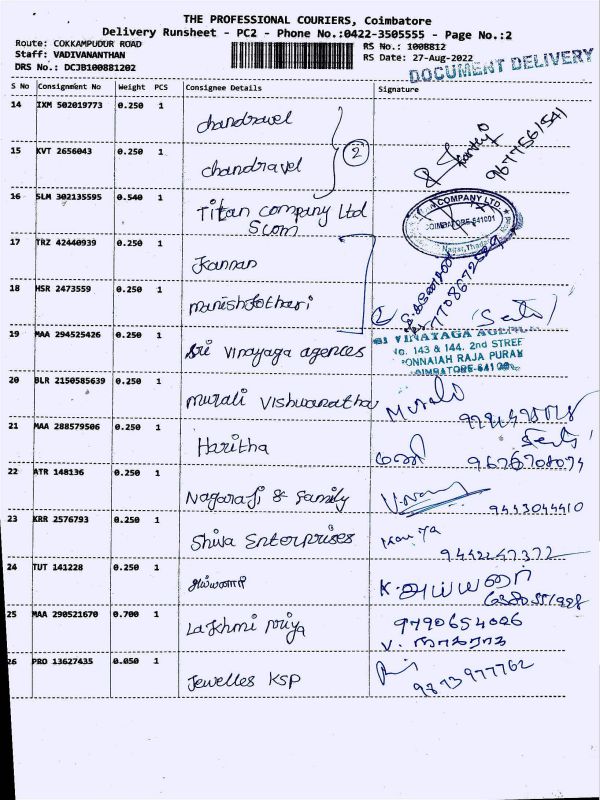 THE PROFESSIONAL COURIERS, Coimbatore
Delivery Runsheet - PC2 - Phone No.:0422-3505555 - Page No.:2
Route: COKKAMPUDUR ROAD
Staff: VADIVANANTHAN
DRS No.: DCJB100881202
RS No.: 1008812
RS Date: 27-Aug-2022
DOCUMENT DELIVERY
S No Consignment No Weight PCS Consignee Details Signature
14 IXM 502019773 0.250 1 chandravel
15 KVT 2656043 0.250 1 chandravel
2
9677561541
16 SLM 302135595 0.540 1 Titan company Ltd
Scom
COMPANY LTD
COIMBATORE-641001
17 TRZ 42440939 0.250 1 Kannan
18 HSR 2473559 0.250 1 manishkothari
19 MAA 294525426 0.250 1 Sri vinayaga agences
SRI VINAYAGA AGENCIES
No. 143 & 144, 2nd STREET
PONNAIAH RAJA PURAM
COIMBATORE-641 001
20 BLR 2150585639 0.250 1 murali vishwanathan Murali
21 MAA 288579506 0.250 1 Haritha
9676708074
22 ATR 148136 0.250 1 Nagaraji & family
9443044410
23 KRR 2576793 0.250 1 Shiva Enterprises Kavya
24 TUT 141228 0.250 1 அய்யனார் K. அய்யனார்
25 MAA 290521670 0.700 1 Lakhmi priya 9790654026
V. நாகராஜ
26 PRO 13627435 0.050 1 Jewelles KSP
9873977762